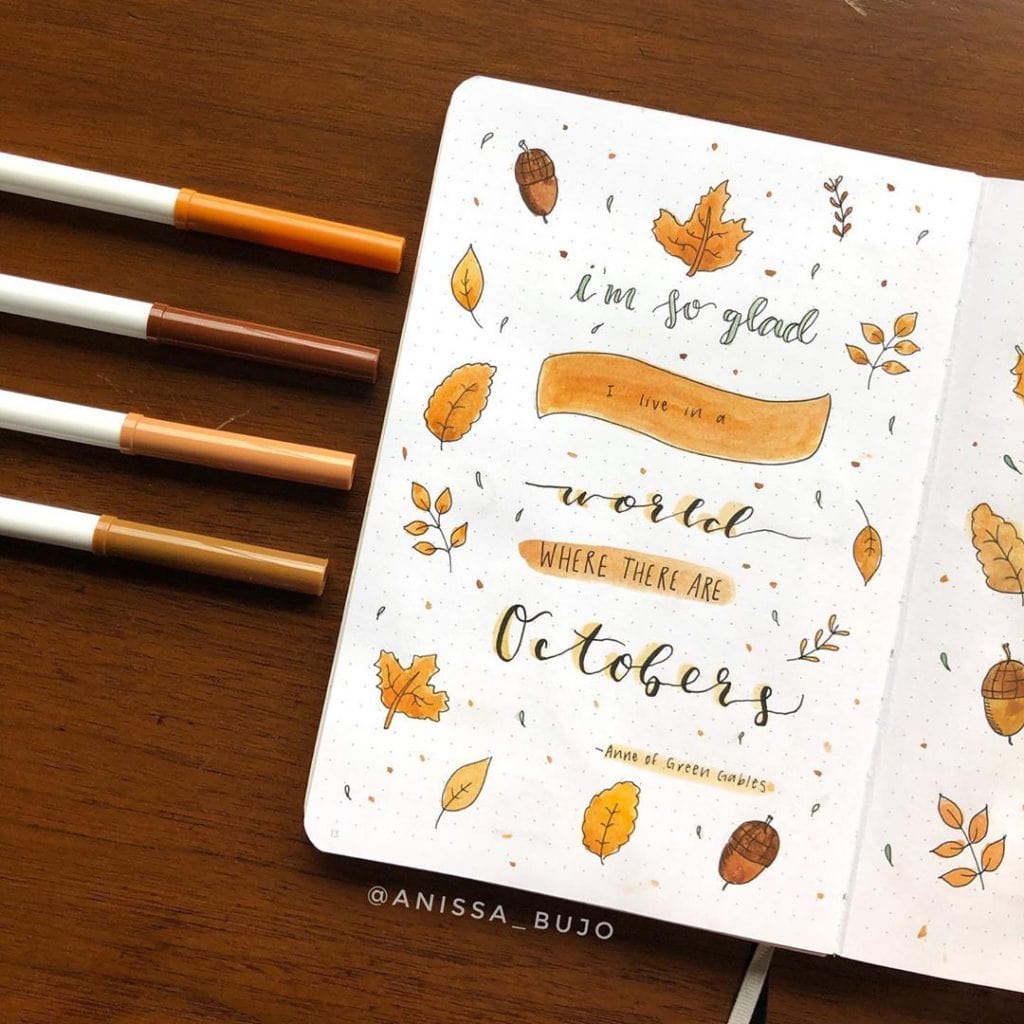 i'm so glad
I live in a
world
WHERE THERE ARE
Octobers
-Anne of Green Gables
13
@ANISSA_BUJO